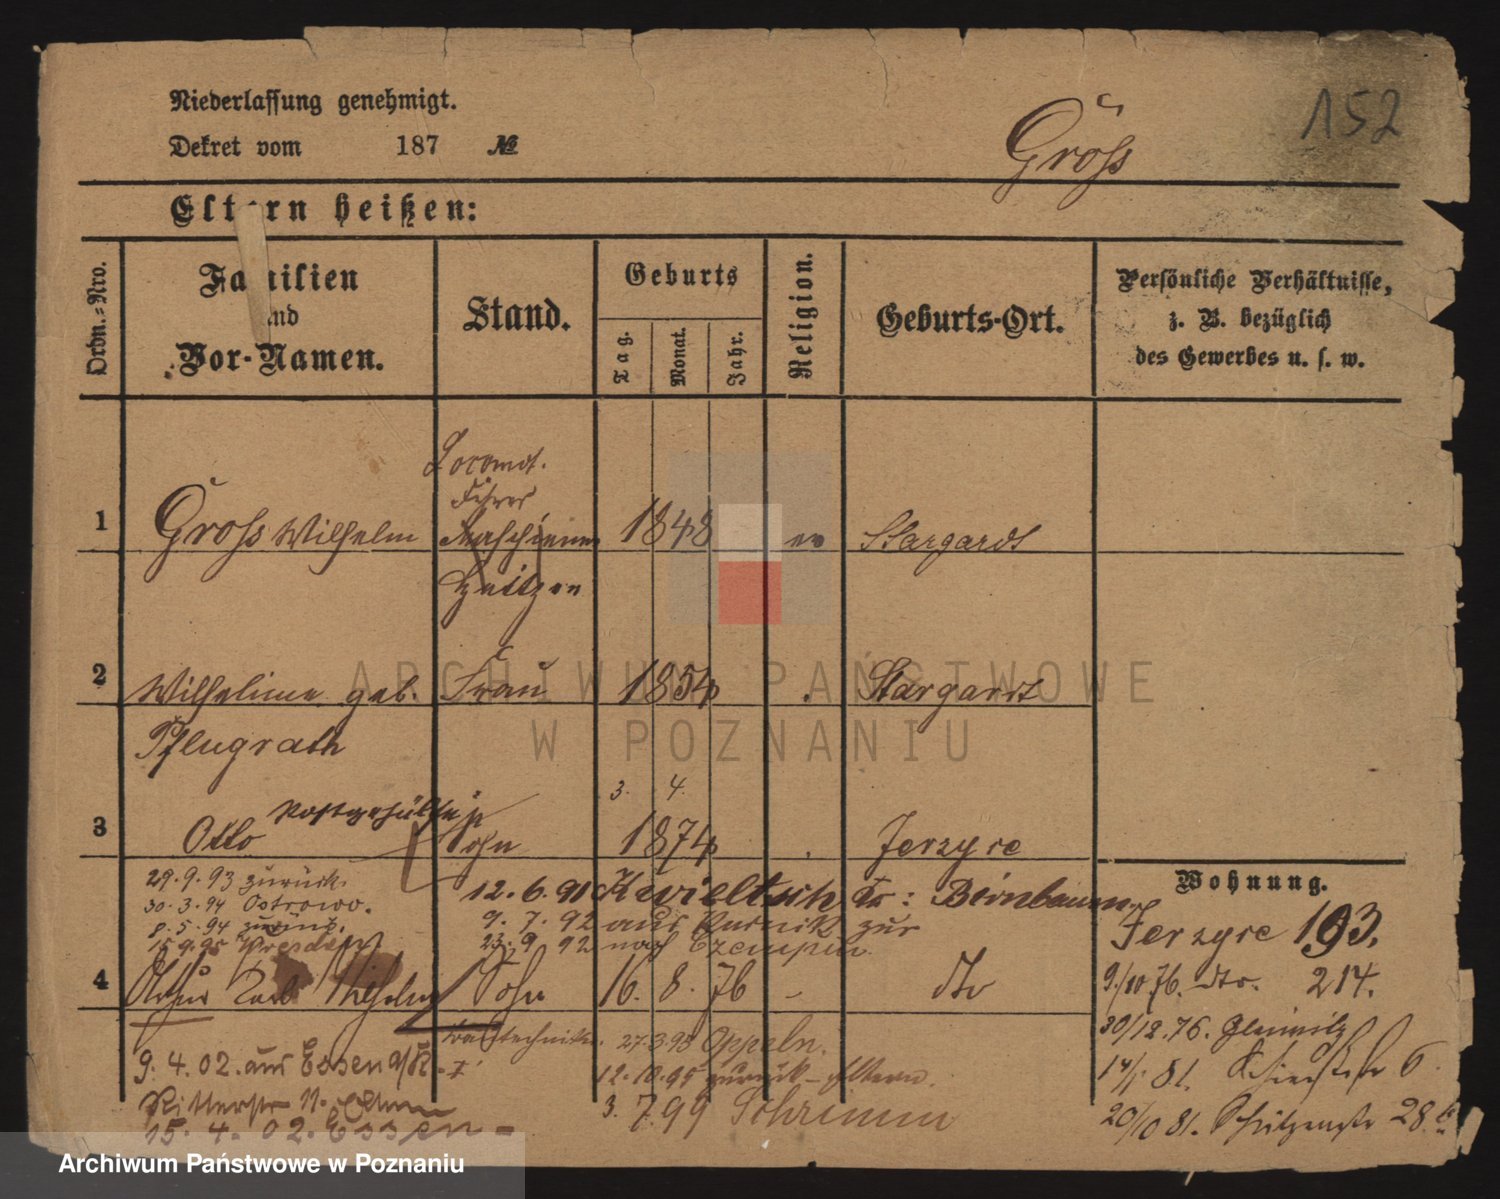 Niederlassung genehmigt.
Dekret vom 187 №
Gross
152
Eltern heißen:
Ordn.-Nro.
Familien und Vor-Namen.
Stand.
Geburts
Tag.
Monat.
Jahr.
Religion.
Geburts-Ort.
Persönliche Verhältnisse,
z. B. bezüglich
des Gewerbes u. s. w.
Locomot.
Führer
1 Gross Wilhelm Maschienen 1848 ev Stargardt
Heitzer
2 Wilhelmine geb. Frau 1854 Stargardt
Pflugrath
3. 4.
Postgehülfe
3 Otto Sohn 1874 Jerzyce
29.9.93 zurück.
30.3.94 Ostrowo.
8.5.94 zurück.
15.9.95 Dresden
12.6.91 Kwieltsch Kr: Birnbaum
9.7.92 aus Kurnik zur
23.9.92 nach Czempin
4 Arthur Karl Wilhelm Sohn 16. 8. 76 - dto
Bautechniker. 27.3.95 Oppeln.
12.10.95 zurück - Eltern.
3.7.99 Schrimm
9.4.02. aus Essen a/R.
Ritterstr 11.
15.4.02. Essen
Wohnung.
Jerzyce 193.
9/10 76. dto. 214.
30/12.76.
14/1 81. 6
20/10 81. Schützenstr 28.
ARCHIWUM PAŃSTWOWE
W POZNANIU
Archiwum Państwowe w Poznaniu